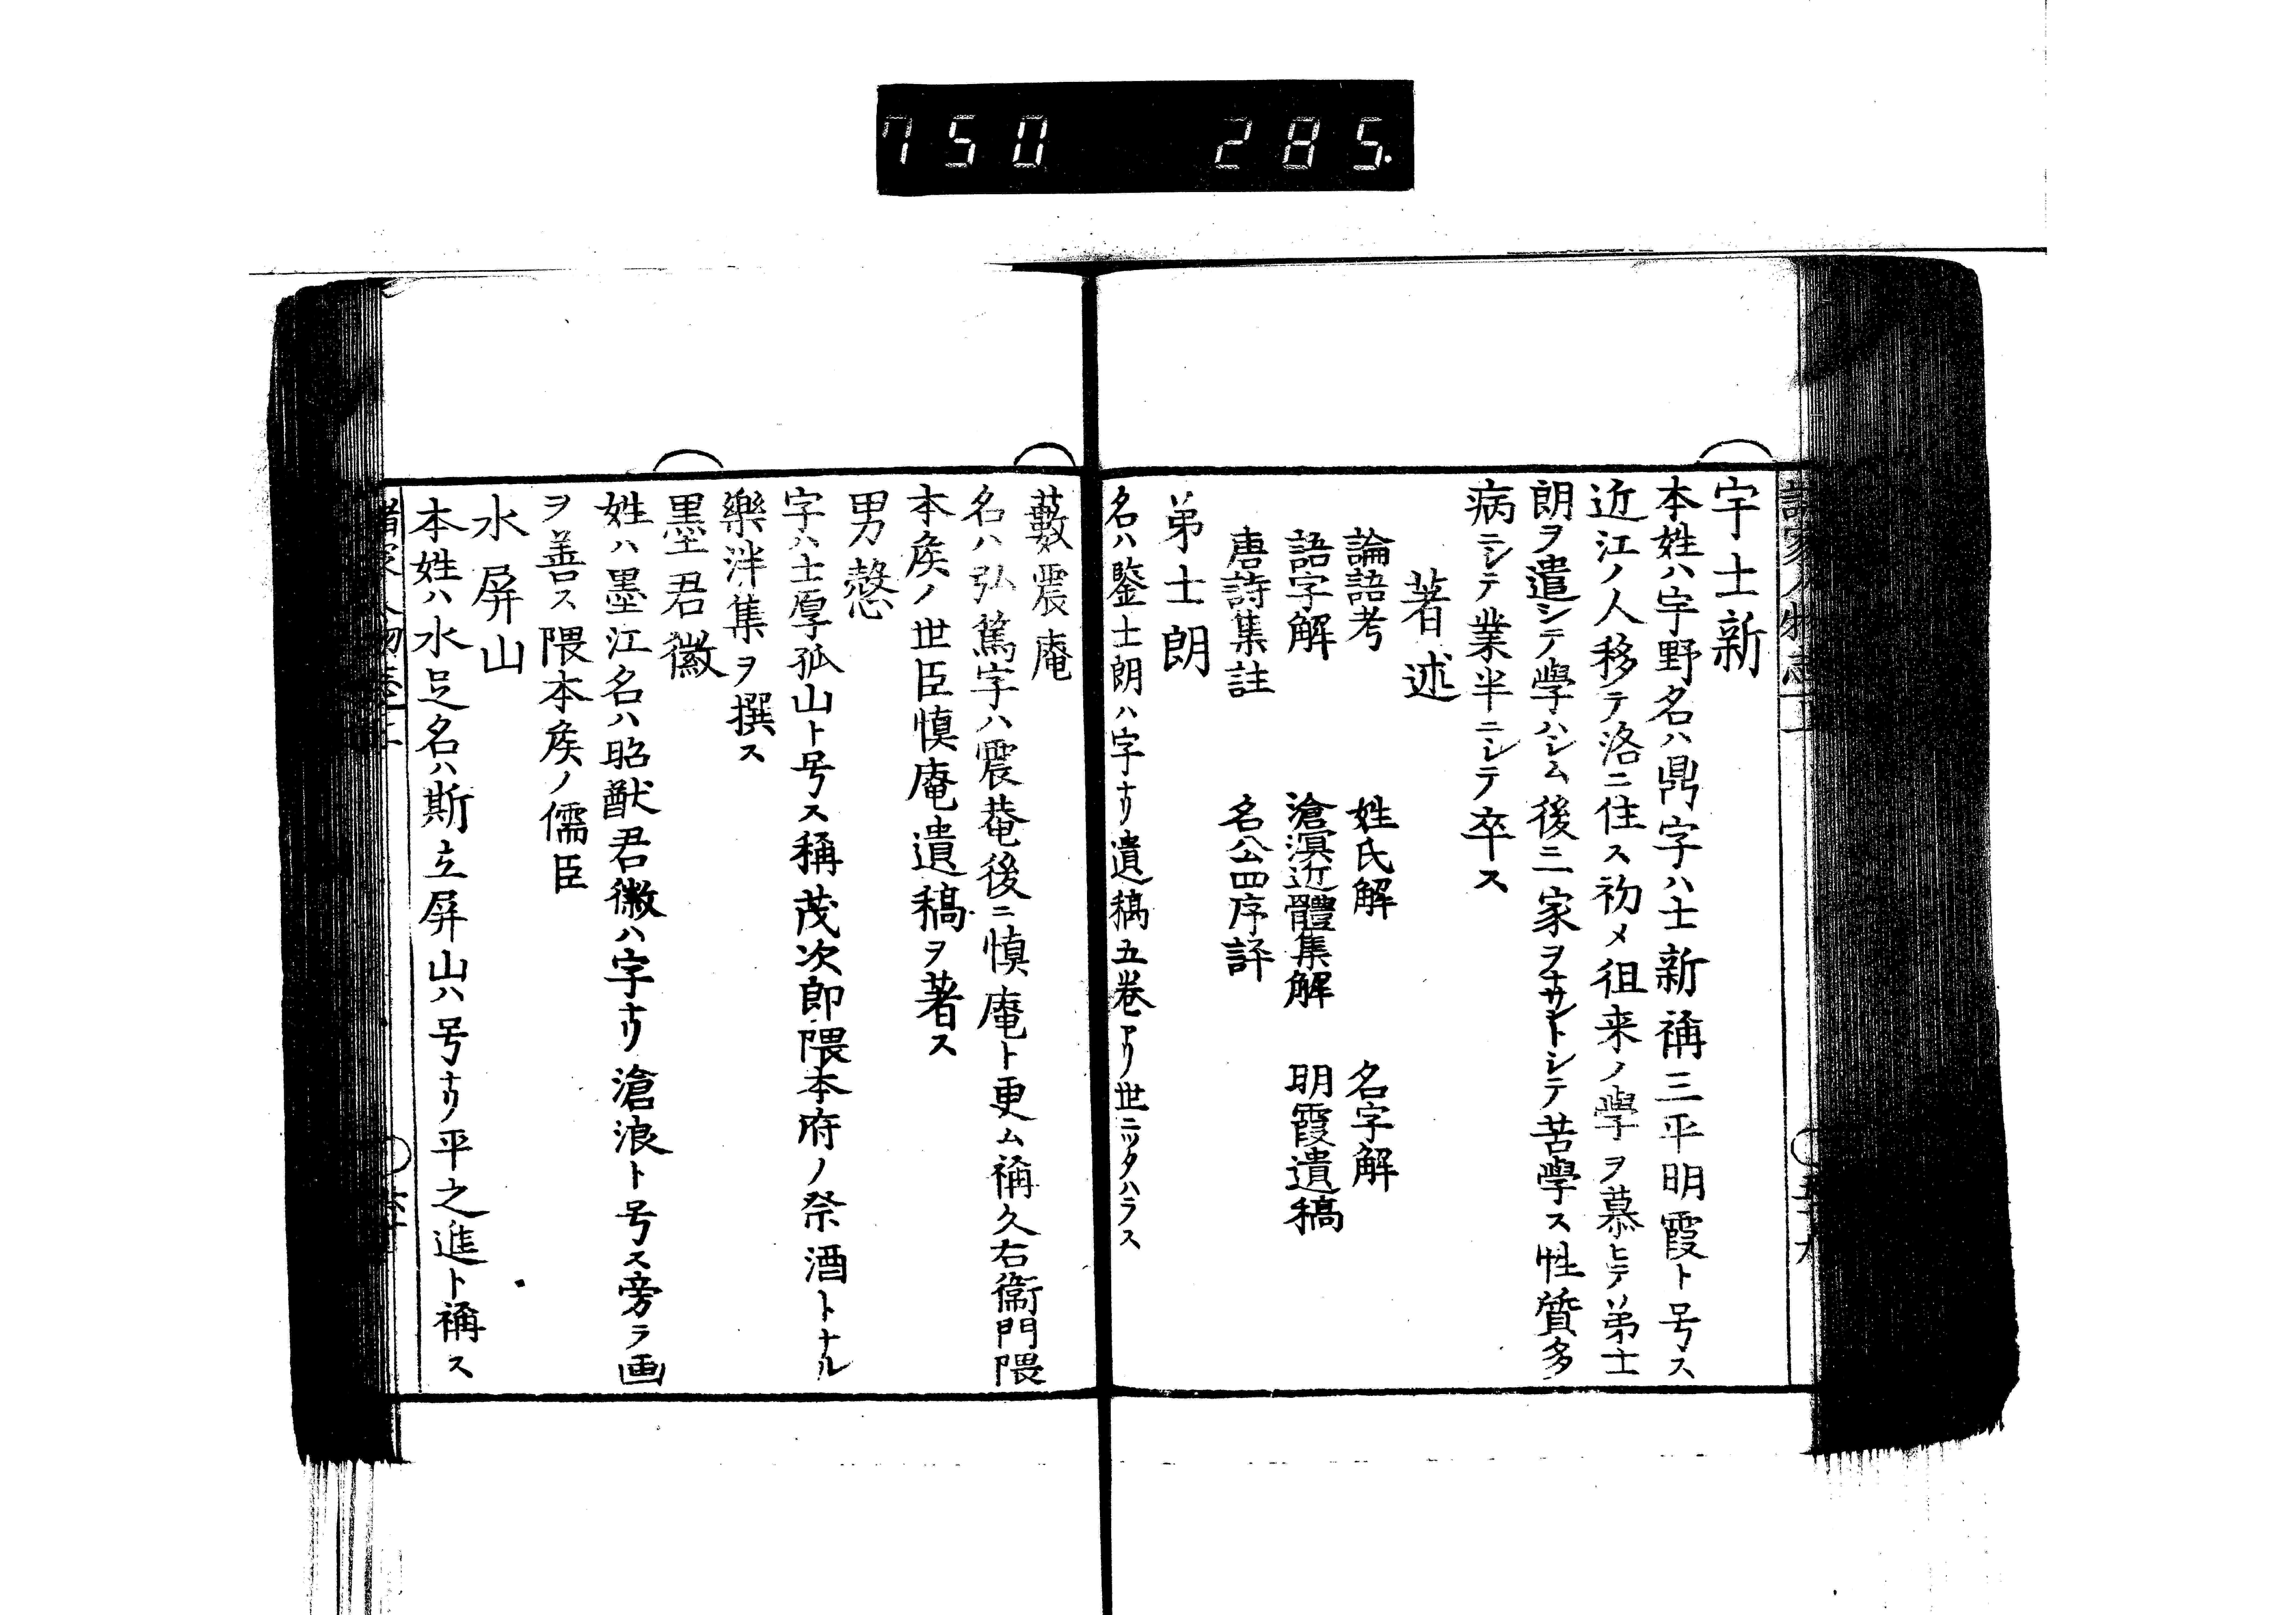 750 285.
宇士新
本姓ハ宇野名ハ鼎字ハ士新稱三平明霞ト号ス
近江ノ人移テ洛ニ住ス初メ徂来ノ學ヲ慕ヒテ弟士
朗ヲ遣シテ學ハシム後ニ一家ヲナサントシテ苦學ス性質多
病ニシテ業半ニシテ卒ス
著述
論語考 姓氏解 名字解
語字解 滄溟近體集解 明霞遺稿
唐詩集註 名公四序評
弟士朗
名ハ鑒士朗ハ字ナリ遺稿五卷アリ世ニツタハラス
藪震庵
名ハ弘篤字ハ震菴後ニ慎庵ト更ム稱久右衞門隈
本矦ノ世臣慎庵遺稿ヲ著ス
男愨
字ハ士厚孤山ト号ス稱茂次郎隈本府ノ祭酒トナル
樂泮集ヲ撰ス
墨君徽
姓ハ墨江名ハ昭猷君徽ハ字ナリ滄浪ト号ス旁ラ画
ヲ善ス隈本矦ノ儒臣
水屏山
本姓ハ水足名ハ斯立屏山ハ号ナリ平之進ト稱ス